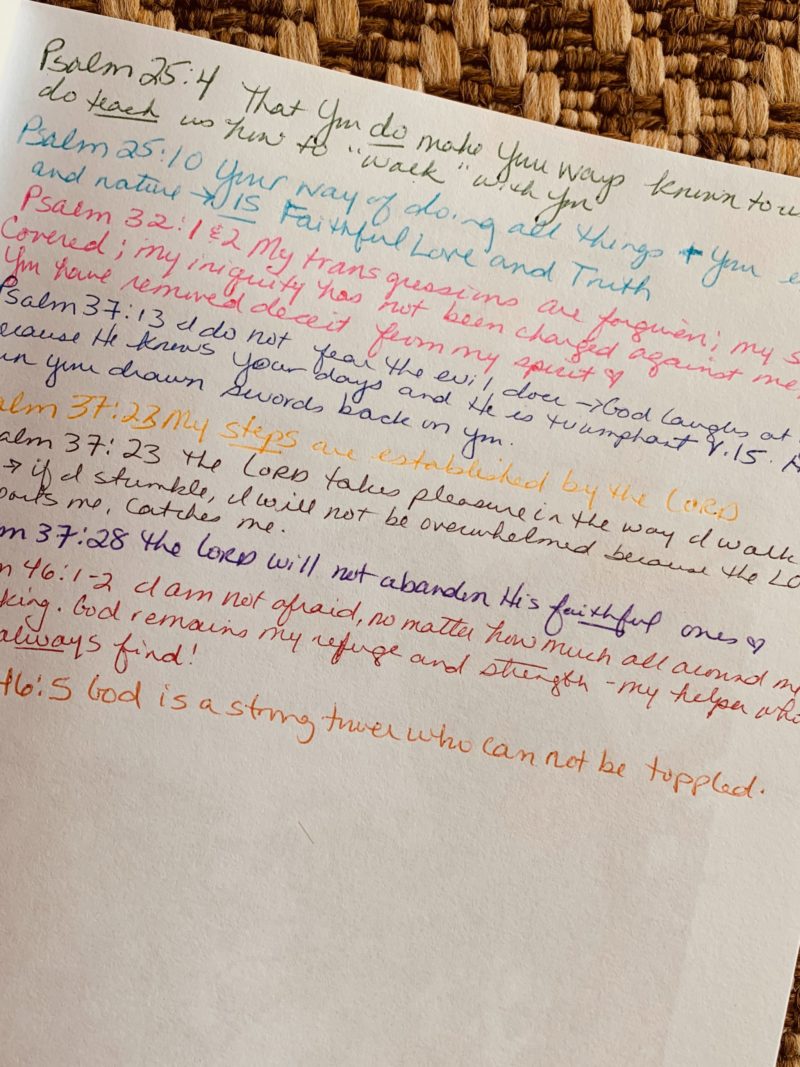 Psalm 25:4 That You do make your ways known to us
do teach us how to "walk" with You
Psalm 25:10 Your way of doing all things + Your
and nature → is Faithful Love and Truth
Psalm 32:1 & 2 My transgressions are forgiven; my
Covered; my iniquity has not been charged against me
You have removed deceit from my spirit ♡
Psalm 37:13 I do not fear the evil doer → God laughs at
because He knows your days and He is triumphant V.15.
your drawn swords back on you.
alm 37:23 My steps are established by the LORD
alm 37:23 the LORD takes pleasure in the way I walk
→ if I stumble, I will not be overwhelmed because the LO
me, catches me.
m 37:28 the LORD will not abandon His faithful ones ♡
m 46:1-2 I am not afraid, no matter how much all around me
king. God remains my refuge and strength - my helper who
always find!
46:5 God is a strong tower who can not be toppled.